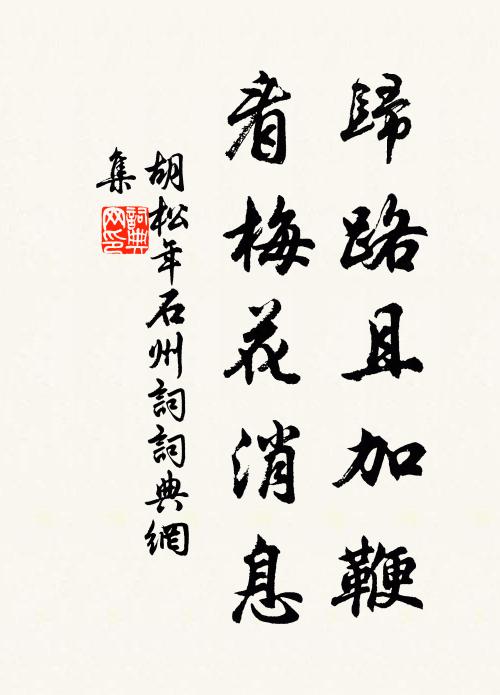 歸路且加鞭
看梅花消息
胡松年石州詞詞典網
集
詞典
网印